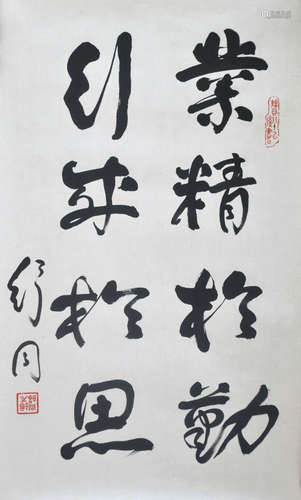 業精於勤
行成於思
舒同